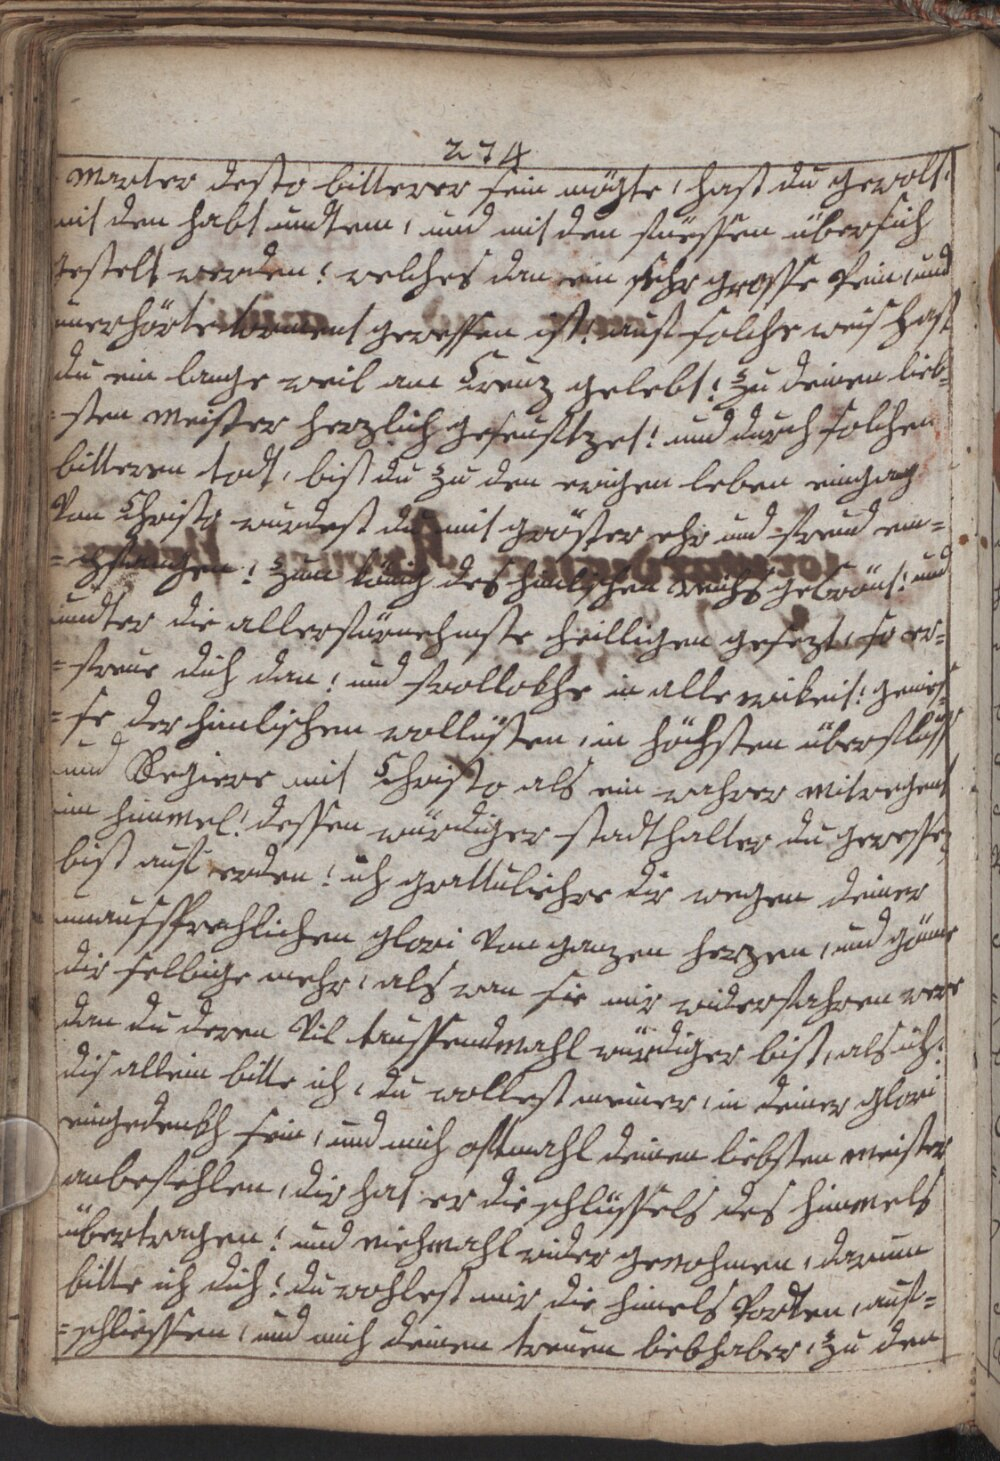 274
Marter desto bitterer sein mögte, hast du gewolt,
mit den habt undten, und mit den füessen übersich
gestelt werden! welches dan ein sehr grosse pein, und
unerhörte torment gewessen ist, auf solche weis hast
du ein lange weil am Creuz gelebt! zu deinen lieb=
=sten Meister herzlich geseuftzet! und durch solchen
bitteren todt, bist du zu den ewigen leben eingang
Von Christo wurdest du mit gröster ehr und freud em=
=pfangen! zum könig des himlischen reichs gekrönt! und
undter die allerfürnehmste heilligen gesezt, so er=
=freue dich dan! und frollokhe in alle ewikeit! genies=
=se der himlischen wollusten, in höchsten überfluss
und Regiere mit Christo als ein wahrer mitregent
im himmel! dessen würdiger stadthalter du gewessen
bist auf erden! ich grattuliehre dir wegen deiner
unaussprechlichen glori von ganzen herzen, und gönne
dir selbige mehr, als wan sie mir widerfahren were
dan du deren vil taussendmahl würdiger bist, als ich!
dis allein bitte ich, du wollest meiner, in deiner glori
eingedenkh sein, und mich oftmahl deinen liebsten meister
anbefehlen, dir hat er die schlüssels des himmels
übertragen! und niehmahl wider genohmen, darumb
bitte ich dich! du wohlest mir die himels Pordten, auf=
=schliessen, und mich deinen treuen liebhaber, zu den